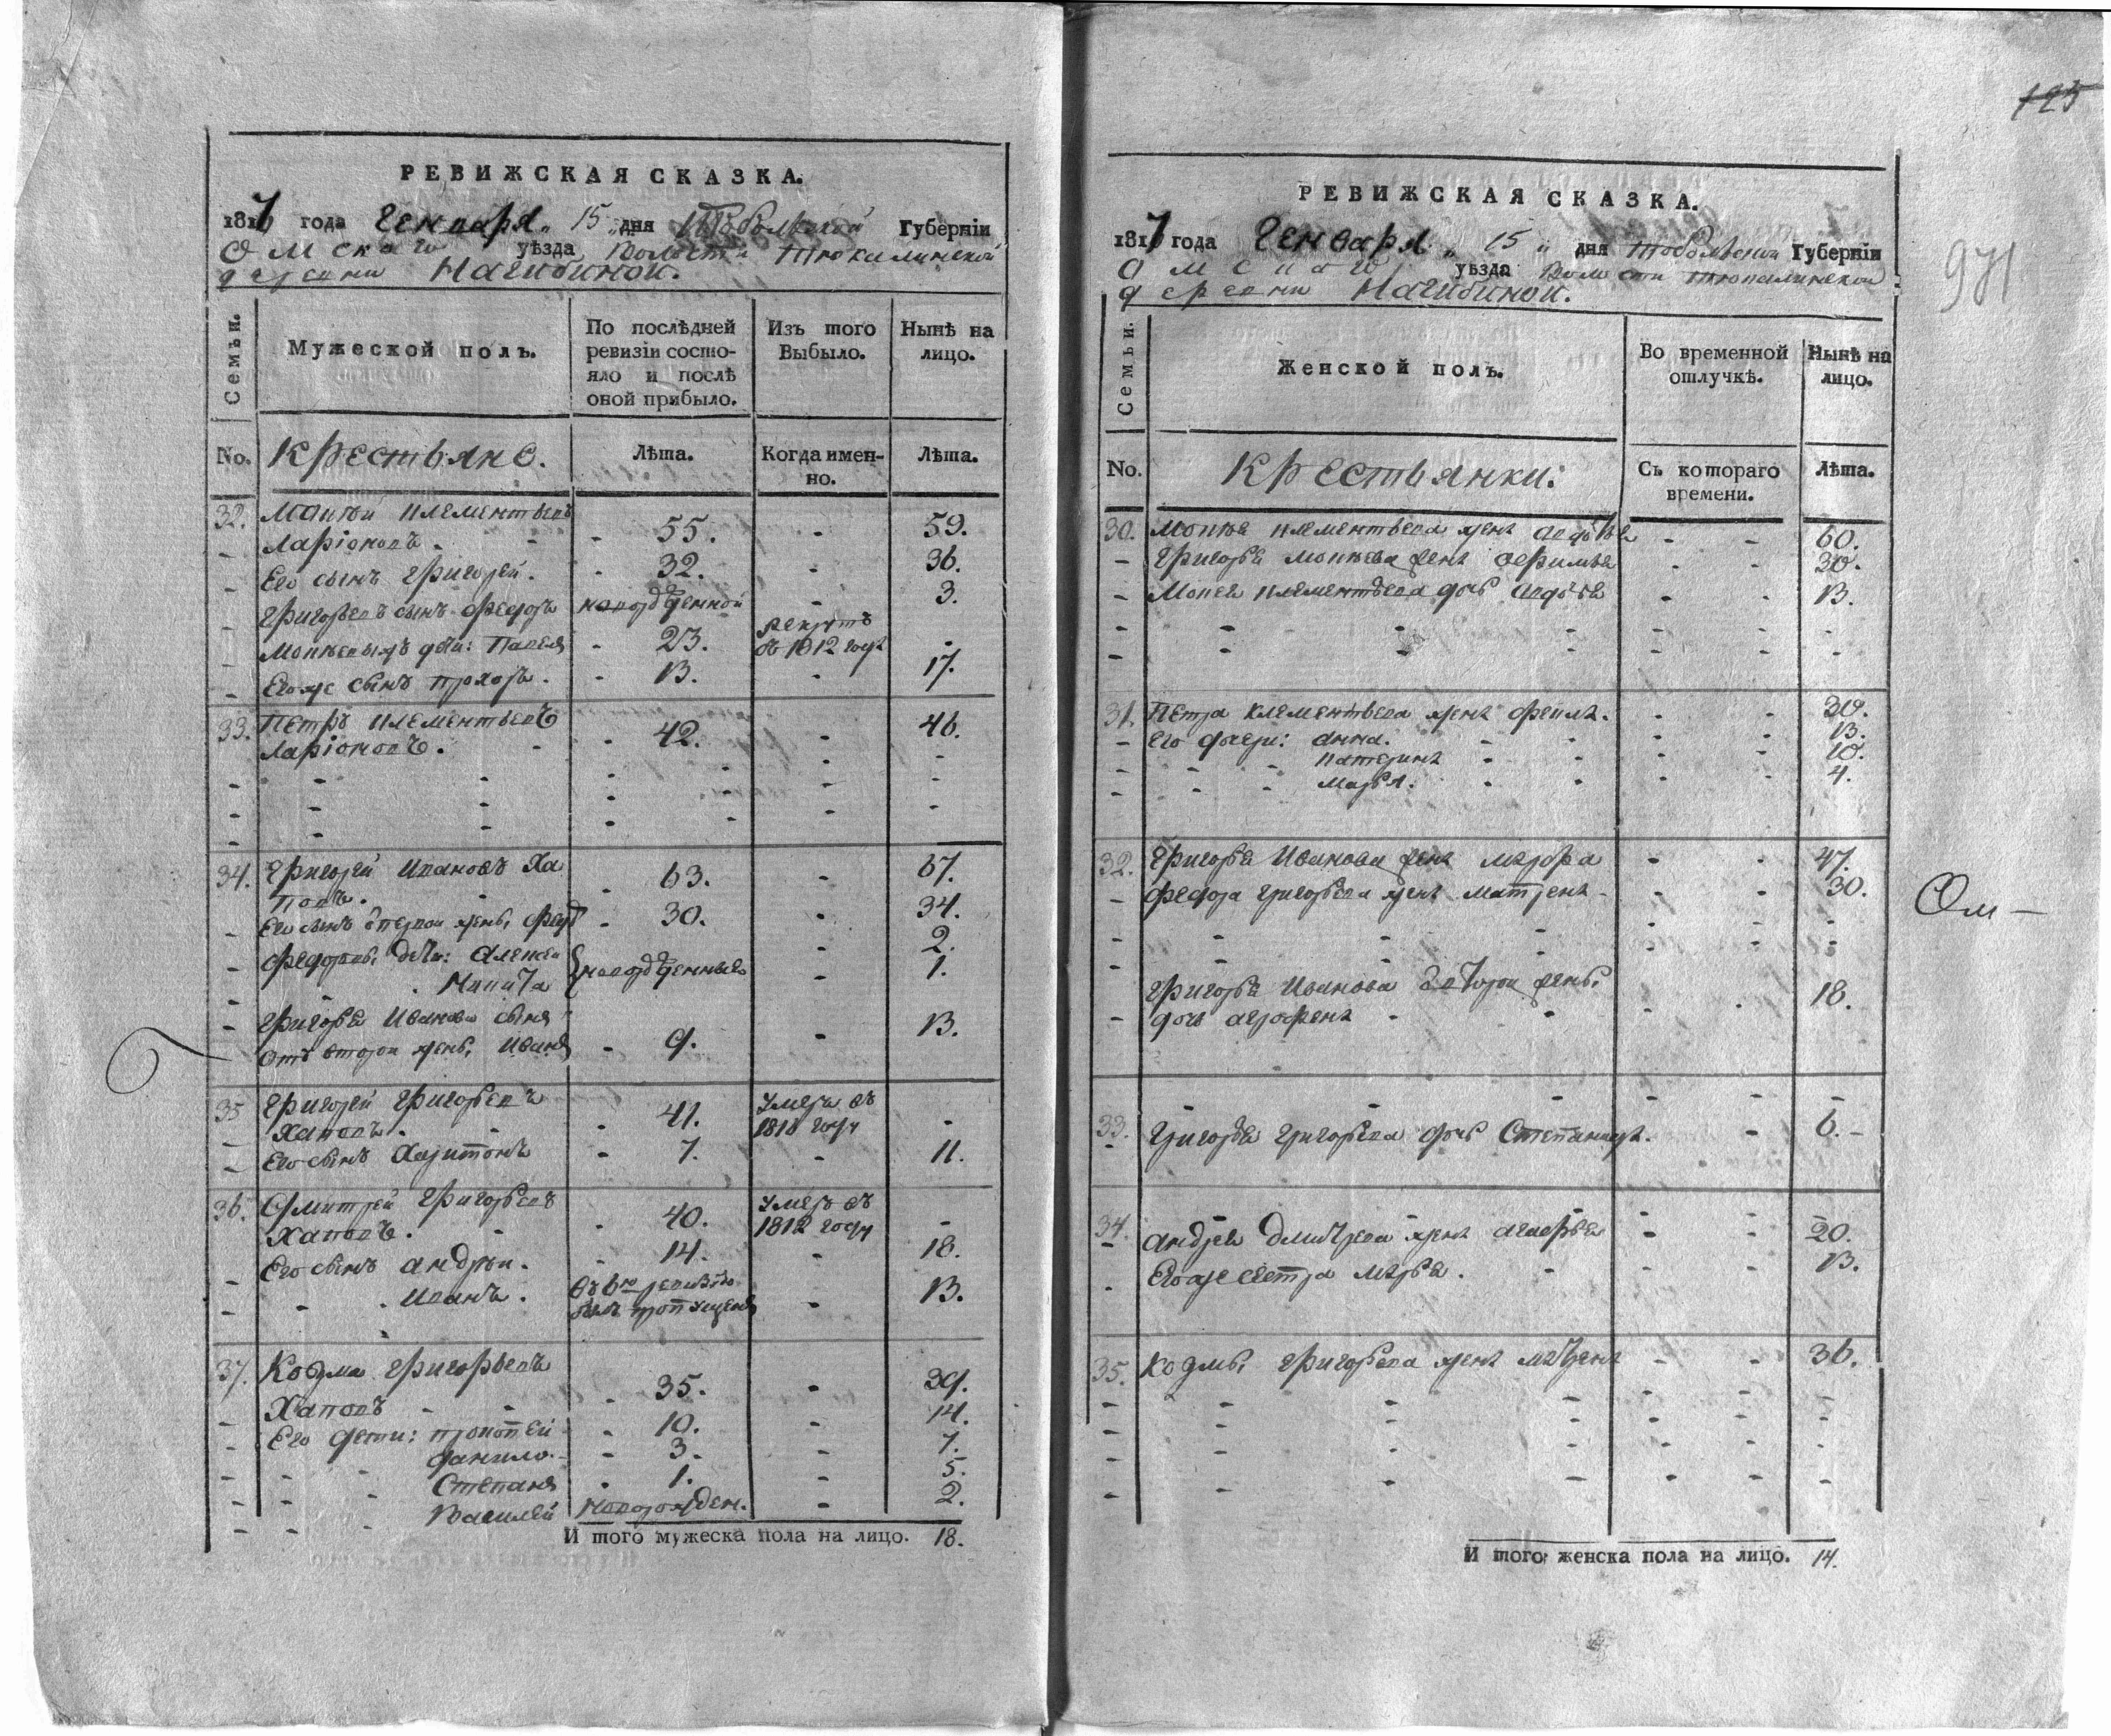 125
971
РЕВИЖСКАЯ СКАЗКА.
1817 года Генваря 15 дня Тобольской Губерніи
Омскаго уѣзда Волости Тюкалинской
деревни Нагибиной.
Семьи.
Мужеской полъ.
По послѣдней ревизіи состо-
яло и послѣ
оной прибыло.
Изъ того
Выбыло.
Нынѣ на
лицо.
No.
Крестьяне.
Лѣта.
Когда имен-
но.
Лѣта.
32. Мокѣй Клементьевъ
Ларіоновъ - 55. - 59.
Его сынъ Григорей. - 32. - 36.
Григорьевъ сынъ Федоръ новорожденной - 3.
Мокѣевыхъ дѣти: Павелъ - 23. рекрутъ въ 1812 году -
Его же сынъ Прохоръ. - 13. - 17.
33. Петръ Клементьевъ
Ларіоновъ. - 42. - 46.
34. Григорей Ивановъ Ха
повъ. - 63. - 67.
Его сынъ отъ первой жены Федоръ - 30. - 34.
Федоровы дѣти: Алексѣй - 2.
Никита новорожденные - 1.
Григорья Иванова сынъ
отъ второй жены Иванъ - 9. - 13.
35 Григорей Григорьевъ
Хаповъ. - 41. умеръ въ 1816 году -
Его сынъ Харитонъ - 7. - 11.
36. Дмитрей Григорьевъ
Хаповъ. - 40. умеръ въ 1812 году -
Его сынъ Андрѣй. - 14. - 18.
Иванъ. въ 6ю ревизію былъ пропущенъ - 13.
37. Кодма Григорьевъ
Хаповъ - 35. - 39.
Его дети: Прокопей - 10. - 14.
Данило - 3. - 7.
Степанъ - 1. - 5.
Василей новорожден. - 2.
И того мужеска пола на лицо. 18.
РЕВИЖСКАЯ СКАЗКА.
1817 года Генваря 15 дня Тобольской Губерніи
Омскаго уѣзда Волости Тюкалинской
деревни Нагибиной.
Семьи.
Женской полъ.
Во временной
отлучкѣ.
Нынѣ на
лицо.
No.
Крестьянки:
Съ котораго
времени.
Лѣта.
30. Мокѣя Клементьева жена Авдотья - - 60.
Григорья Мокѣева жена - - 30.
Мокея Клементьева дочь Авдотья - - 13.
31. Петра Клементьева жена Фекла. - - 30.
Его дочери: Анна. - - 13.
Катерина - - 10.
Марья. - - 4.
32. Григорья Иванова жена Марфа - - 47.
Федора Григорьева жена Матрена - - 30.
Григорья Иванова второй жены
дочь Аграфена - - 18.
33. Григорья Григорьева дочь Степанида. - 6.
34. Андрея Дмитрева жена Агафья - - 20.
Его же сестра Марья. - - 13.
35. Кодмы Григорьева жена Матрена - - 36.
И того женска пола на лицо. 14.
Ом